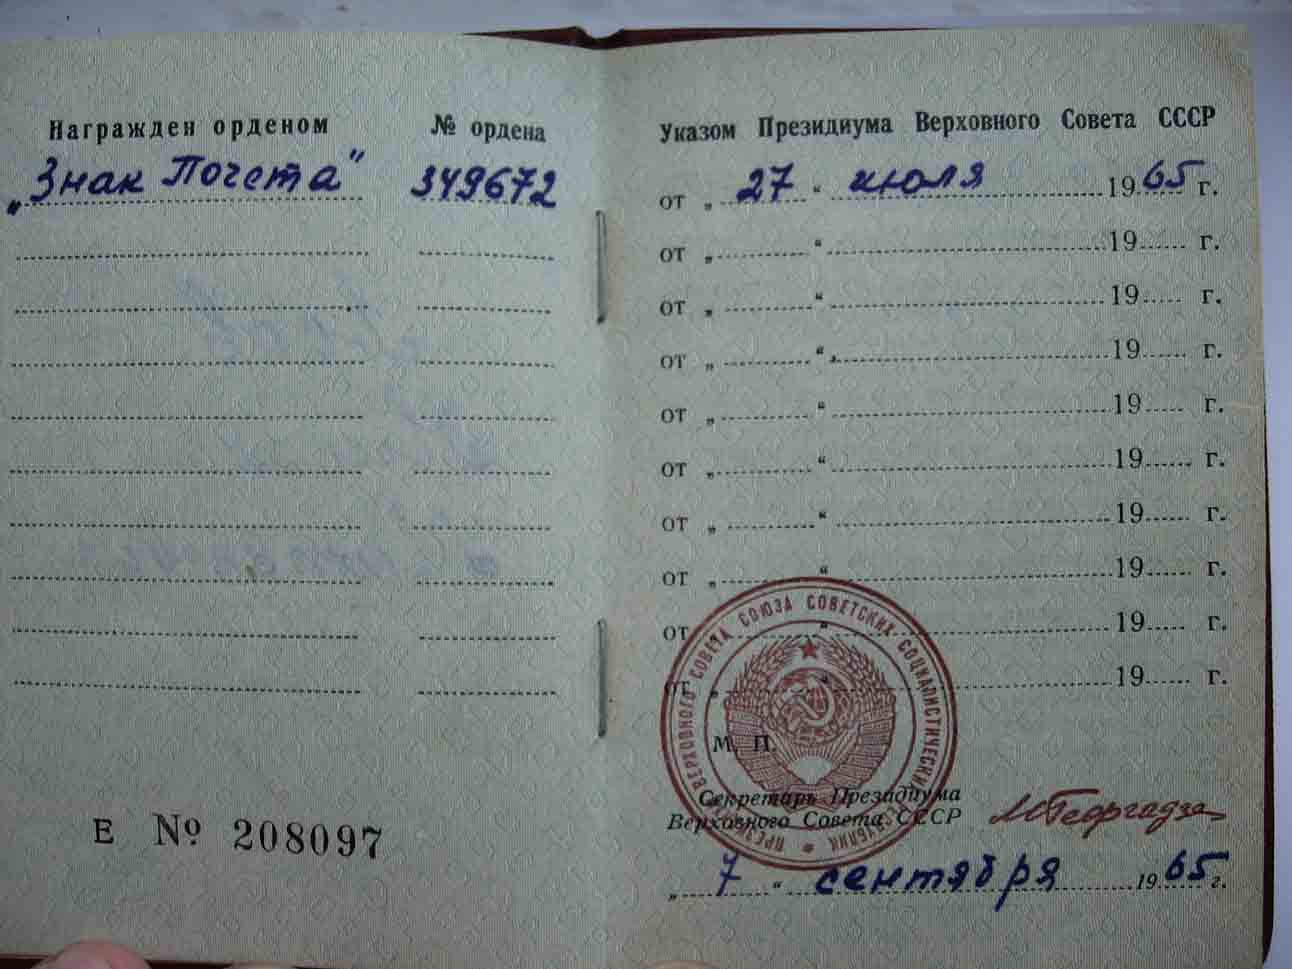 Награжден орденом № ордена
„Знак Почета" 349672
Е № 208097
Указом Президиума Верховного Совета СССР
от „ 27 “ июля 1965 г.
от „ “ 19 г.
от „ “ 19 г.
от „ “ 19 г.
от „ “ 19 г.
от „ “ 19 г.
от „ “ 19 г.
от „ “ 19 г.
от „ “ 19 г.
от „ “ 19 г.
ВЕРХОВНОГО СОВЕТА СОЮЗА СОВЕТСКИХ СОЦИАЛИСТИЧЕСКИХ
М. П.
Секретарь Президиума
Верховного Совета СССР МГеоргадзе
„ 7 “ сентября 1965 г.